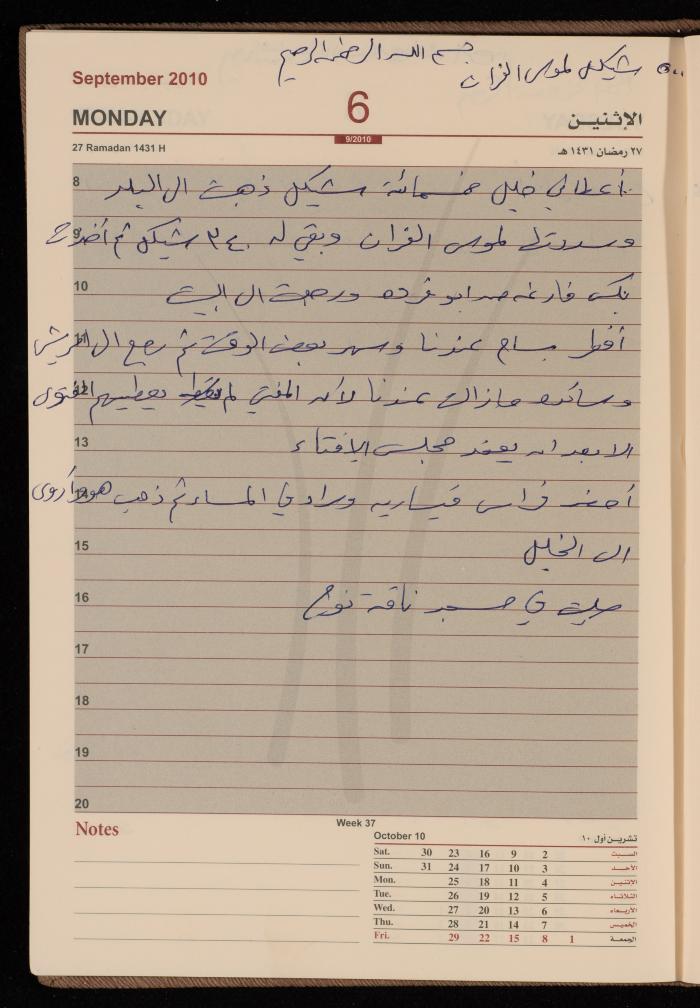 بسم الله الرحمن الرحيم
٥٠٠ شيكل لموسى القزاز
September 2010
MONDAY
6
الإثنين
9/2010
27 Ramadan 1431 H
٢٧ رمضان ١٤٣١ هـ
8
أعطاني خليل خمسمائة شيكل ذهبت الى البلد
9
وسددت لموسى القزاز وبقي له ٣٤٠ شيكل ثم
10
فارغه من ابو ورجعت الى البيت
11
أفطر سامح عندنا وسهر بعض الوقت ثم رجع الى
12
مازالت عندنا لأن المفتي لم يعطيهم الفتوى
13
الا بعد ان يعقد مجلس الافتاء
14
أحضر فراس في المساء ثم ذهب هو وأروى
15
الى الخليل
16
صليت في مسجد ناقة نوح
17
18
19
20
Notes
Week 37
October 10
تشرين أول ١٠
Sat. 30 23 16 9 2 السبت
Sun. 31 24 17 10 3 الأحد
Mon. 25 18 11 4 الإثنين
Tue. 26 19 12 5 الثلاثاء
Wed. 27 20 13 6 الأربعاء
Thu. 28 21 14 7 الخميس
Fri. 29 22 15 8 1 الجمعة